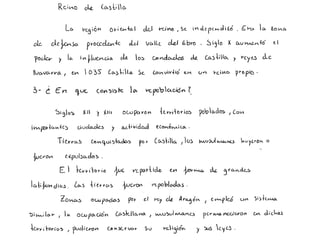 Reino de Castilla
La región oriental del reino, se independizó. Era la zona
de defensa procedente del valle del Ebro. Siglo X aumentó el
poder y la influencia de los condados de Castilla, y reyes de
Navarra, en 1035 Castilla se convirtió en un reino propio.
3- ¿En que consiste la repoblación?
Siglos XII y XIII ocuparon territorios poblados, con
importantes ciudades y actividad económica.
Tierras conquistadas por Castilla, los musulmanes huyeron o
fueron expulsados.
El territorio fue repartido en forma de grandes
latifundios. Las tierras fueron repobladas.
Zonas ocupadas por el rey de Aragón, empleó un sistema
similar, la ocupación castellana, musulmanes permanecieron en dichos
territorios, pudieron conservar su religión y sus leyes.